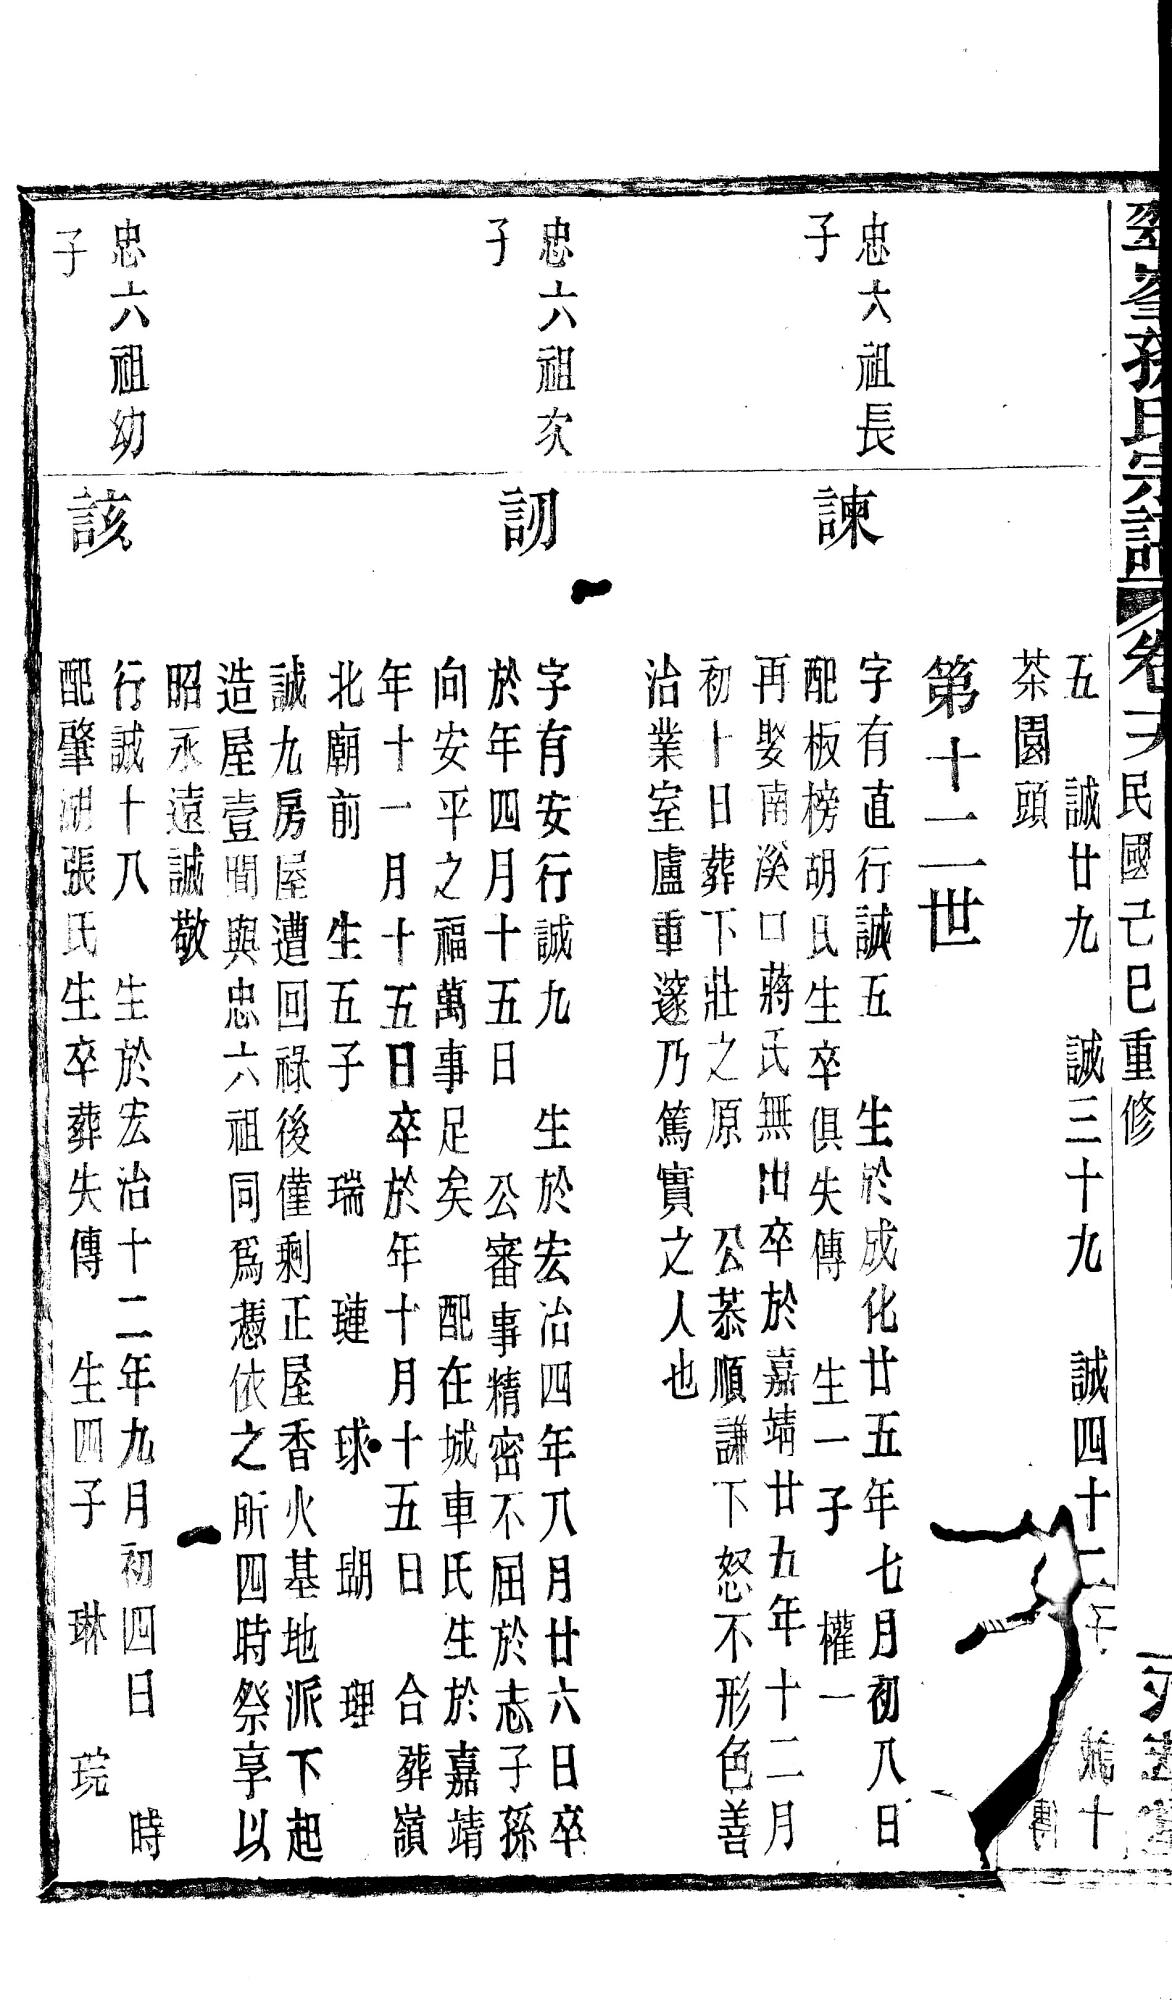 孫氏宗譜 卷 民國己巳重修
五 誠廿九 誠三十九 誠四十二
茶園頭
第十二世
忠六祖長
子
諫
字有直行誠五 生於成化廿五年七月初八日
配板榜胡氏生卒俱失傳 生一子 權一
再娶南溪口蔣氏無出卒於嘉靖廿五年十二月
初十日葬下莊之原 公恭順謙下怒不形色善
治業室廬重邃乃篤實之人也
忠六祖次
子
訒
字有安行誠九 生於宏治四年八月廿六日卒
於年四月十五日 公審事精密不屈於志子孫
向安平之福萬事足矣 配在城車氏生於嘉靖
年十一月十五日卒於年十月十五日 合葬嶺
北廟前 生五子 瑞 璉 球 瑚 理
誠九房屋遭回祿後僅剩正屋香火基地派下起
造屋壹間與忠六祖同爲憑依之所四時祭享以
昭永遠誠敬
忠六祖幼
子
該
行誠十八 生於宏治十二年九月初四日 時
配肇湖張氏生卒葬失傳 生四子 琳 琓